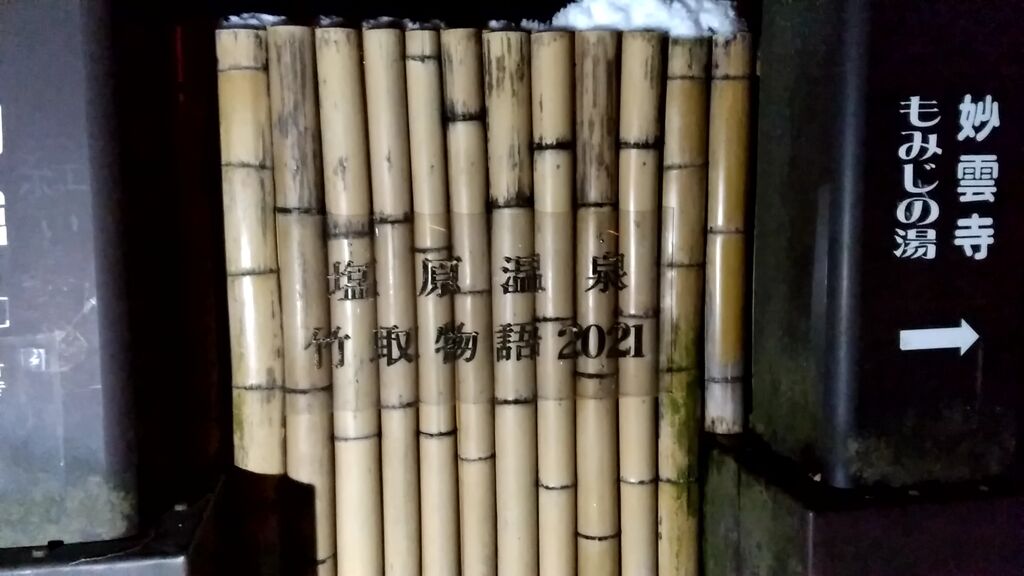 塩原温泉
竹取物語2021
妙雲寺
もみじの湯